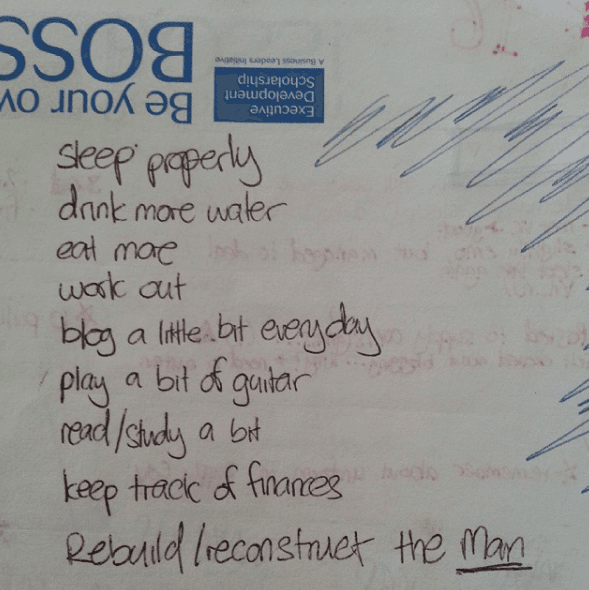 BOSS
Be your ow
A Business Leaders Initiative
Executive
Development
Scholarship
sleep properly
drink more water
eat more
work out
blog a little bit everyday
play a bit of guitar
read/study a bit
keep track of finances
Rebuild/reconstruct the Man